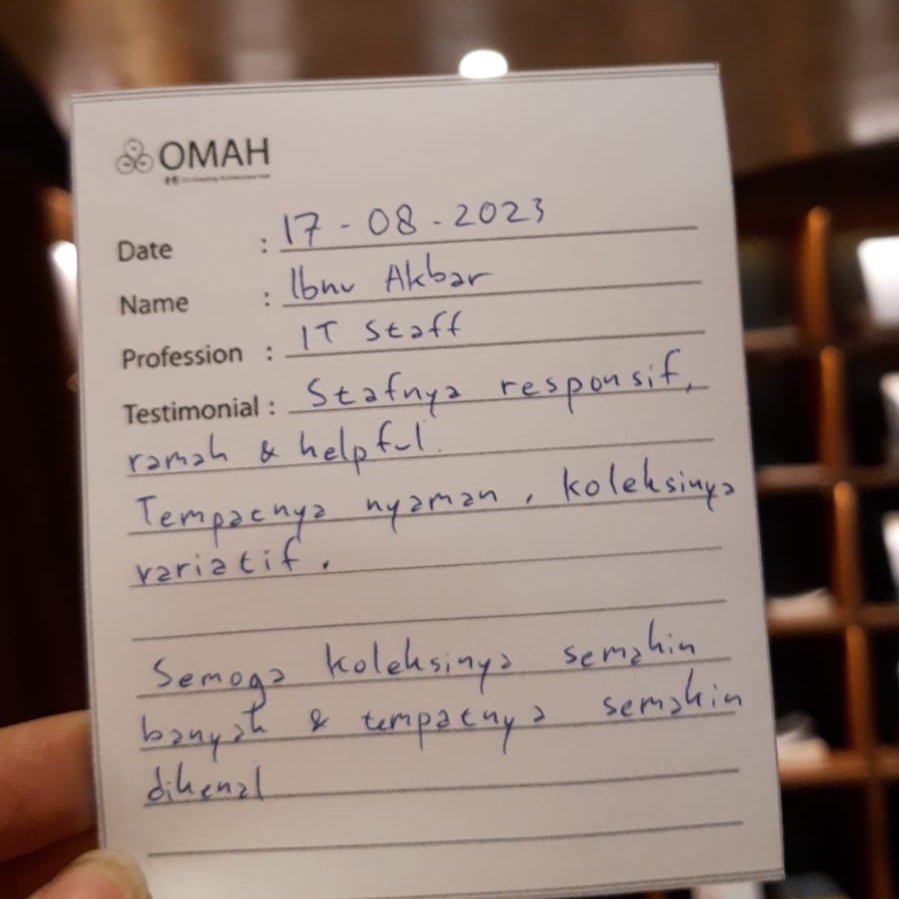 OMAH
Date : 17-08-2023
Name : Ibnu Akbar
Profession : IT Staff
Testimonial : Stafnya responsif,
ramah & helpful.
Tempatnya nyaman, koleksinya
variatif.
Semoga koleksinya semakin
banyak & tempatnya semakin
dikenal